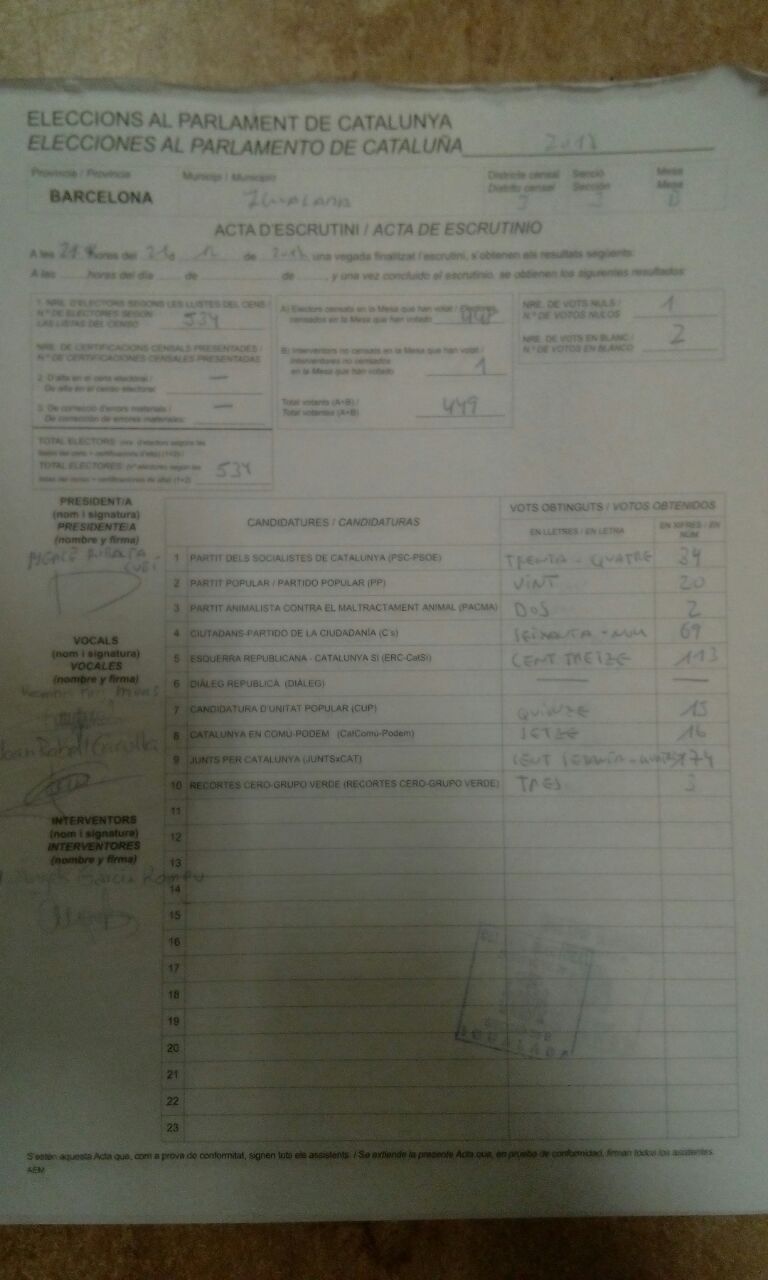 ELECCIONS AL PARLAMENT DE CATALUNYA
ELECCIONES AL PARLAMENTO DE CATALUÑA
Província / Provincia
Municipi / Municipio
Districte censal Secció Mesa
Distrito censal Sección Mesa
BARCELONA
Igualada
ACTA D'ESCRUTINI / ACTA DE ESCRUTINIO
A les hores del de de una vegada finalitzat l'escrutini, s'obtenen els resultats següents:
A las horas del día de de , y una vez concluido el escrutinio, se obtienen los siguientes resultados:
1. NRE. D'ELECTORS SEGONS LES LLISTES DEL CENS /
N.º DE ELECTORES SEGÚN
LAS LISTAS DEL CENSO 534
NRE. DE CERTIFICACIONS CENSALS PRESENTADES /
N.º DE CERTIFICACIONES CENSALES PRESENTADAS
2. D'alta en el cens electoral / —
De alta en el censo electoral:
3. De correcció d'errors materials / —
De corrección de errores materiales:
TOTAL ELECTORS (nre. d'electors segons les
llistes del cens + certificacions d'alta) (1+2) /
TOTAL ELECTORES (nº electores según las
listas del censo + certificaciones de alta) (1+2) 534
A) Electors censats en la Mesa que han votat / Electores
censados en la Mesa que han votado 448
B) Interventors no censats en la Mesa que han votat /
Interventores no censados
en la Mesa que han votado 1
Total votants (A+B) /
Total votantes (A+B) 449
NRE. DE VOTS NULS / 1
N.º DE VOTOS NULOS
NRE. DE VOTS EN BLANC / 2
N.º DE VOTOS EN BLANCO
PRESIDENT/A
(nom i signatura)
PRESIDENTE/A
(nombre y firma)
VOCALS
(nom i signatura)
VOCALES
(nombre y firma)
INTERVENTORS
(nom i signatura)
INTERVENTORES
(nombre y firma)
García Romeu
CANDIDATURES / CANDIDATURAS
VOTS OBTINGUTS / VOTOS OBTENIDOS
EN LLETRES / EN LETRA
EN XIFRES / EN NÚM.
1 PARTIT DELS SOCIALISTES DE CATALUNYA (PSC-PSOE) TRENTA-QUATRE 34
2 PARTIT POPULAR / PARTIDO POPULAR (PP) VINT 20
3 PARTIT ANIMALISTA CONTRA EL MALTRACTAMENT ANIMAL (PACMA) DOS 2
4 CIUTADANS-PARTIDO DE LA CIUDADANÍA (C's) SEIXANTA-NOU 69
5 ESQUERRA REPUBLICANA - CATALUNYA SÍ (ERC-CatSí) CENT TRETZE 113
6 DIÀLEG REPUBLICÀ (DIÀLEG) — —
7 CANDIDATURA D'UNITAT POPULAR (CUP) QUINZE 15
8 CATALUNYA EN COMÚ-PODEM (CatComú-Podem) SETZE 16
9 JUNTS PER CATALUNYA (JUNTSxCAT) CENT 174
10 RECORTES CERO-GRUPO VERDE (RECORTES CERO-GRUPO VERDE) TRES 3
11
12
13
14
15
16
17
18
19
20
21
22
23
IGUALADA
S'estén aquesta Acta que, com a prova de conformitat, signen tots els assistents. / Se extiende la presente Acta que, en prueba de conformidad, firman todos los asistentes.
AEM